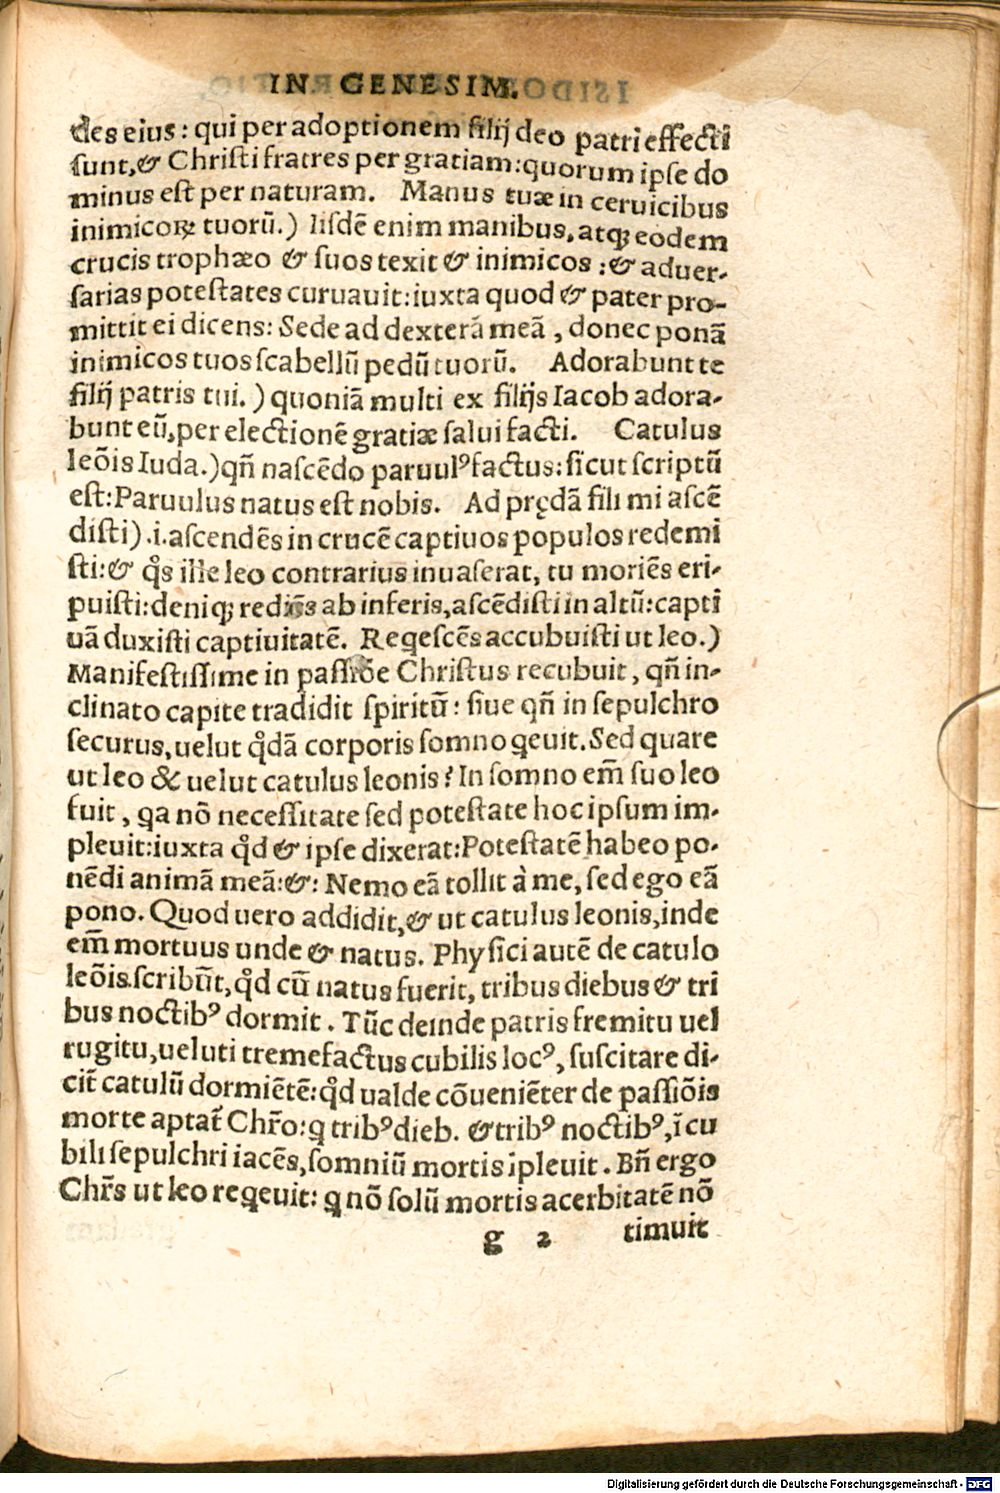 IN GENESIM.
des eius: qui per adoptionem filij deo patri effecti
sunt,& Christi fratres per gratiam:quorum ipse do
minus est per naturam. Manus tuæ in ceruicibus
inimicoꝝ tuorū.) Iisdē enim manibus, atq; eodem
crucis trophæo & suos texit & inimicos :& aduer-
sarias potestates curuauit:iuxta quod & pater pro-
mittit ei dicens: Sede ad dexterā meā , donec ponā
inimicos tuos scabellū pedū tuorū. Adorabunt te
filij patris tui. ) quoniā multi ex filijs Iacob adora-
bunt eū,per electionē gratiæ salui facti. Catulus
leōis Iuda.)qñ nascēdo paruulꝰ factus: sicut scriptū
est:Paruulus natus est nobis. Ad prędā fili mi ascē
disti) .i.ascendēs in crucē captiuos populos redemi
sti:& q̊s ille leo contrarius inuaserat, tu moriēs eri-
puisti:deniq; rediēs ab inferis,ascēdisti in altū:capti
uā duxisti captiuitatē. Reqescēs accubuisti ut leo.)
Manifestissime in passiōe Christus recubuit , qñ in-
clinato capite tradidit spiritū: siue qñ in sepulchro
securus,uelut q̊dā corporis somno qeuit. Sed quare
ut leo & uelut catulus leonis? In somno em̄ suo leo
fuit , qa nō necessitate sed potestate hoc ipsum im-
pleuit:iuxta q̊d & ipse dixerat:Potestatē habeo po-
nēdi animā meā:&: Nemo eā tollit à me, sed ego eā
pono. Quod uero addidit,& ut catulus leonis,inde
em̄ mortuus unde & natus. Physici autē de catulo
leōis.scribūt,q̊d cū natus fuerit, tribus diebus & tri
bus noctibꝰ dormit . Tūc deinde patris fremitu uel
rugitu,ueluti tremefactus cubilis locꝰ, suscitare di-
cit̄ catulū dormiētē:q̊d ualde cōueniēter de passiōis
morte aptat̄ Chr̄o:q tribꝰ dieb. & tribꝰ noctibꝰ,ī cu
bili sepulchri iacēs,somniū mortis īpleuit . Bñ ergo
Chr̄s ut leo reqeuit: q nō solū mortis acerbitatē nō
g 2 timuit
Digitalisierung gefördert durch die Deutsche Forschungsgemeinschaft - DFG